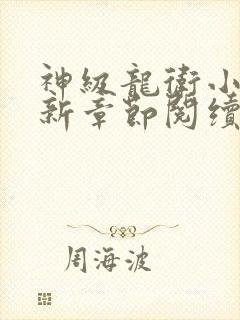 神級龍衛小
新章節閱續
周海波